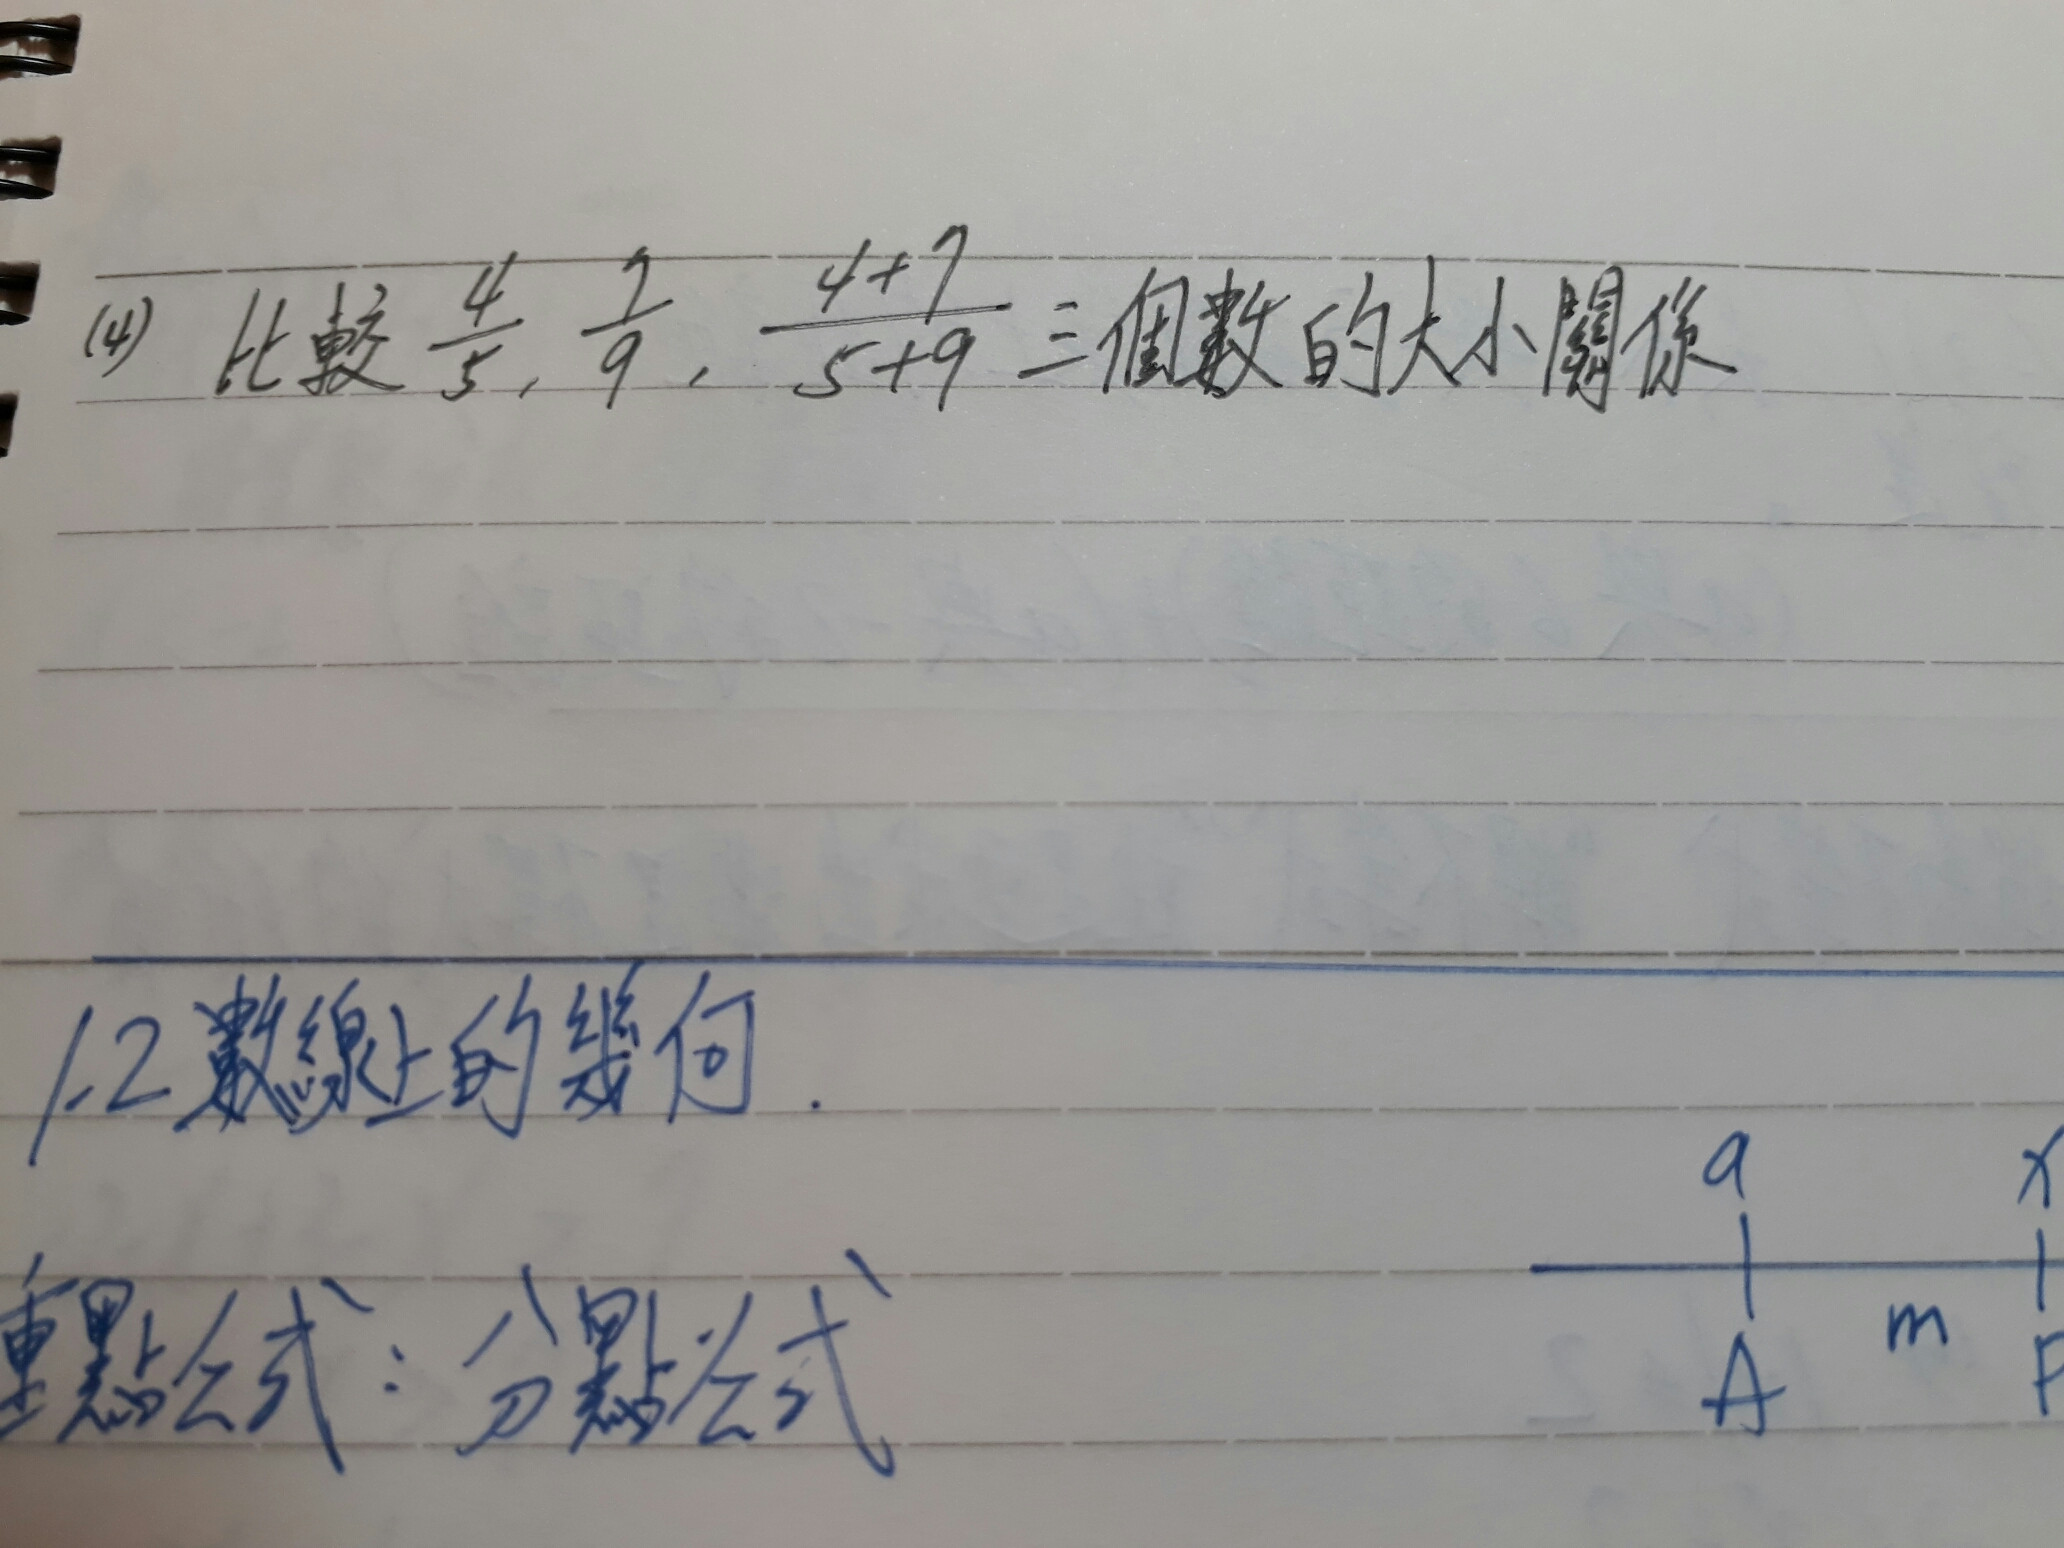 (4) 比較 4/5, 7/9, (4+7)/(5+9) 三個數的大小關係
1.2 數線上的幾何.
重點公式：分點公式
a x
m
A P